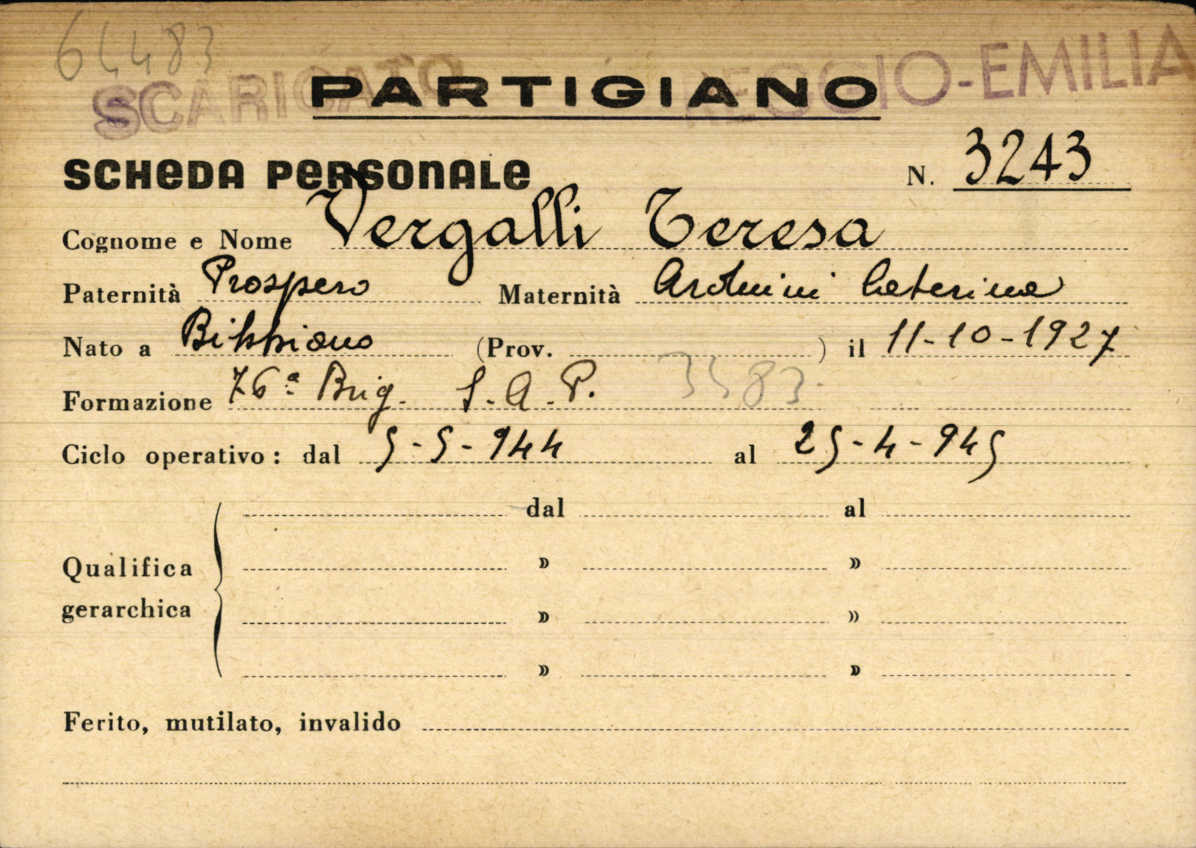 64483
SCARICATO
REGGIO-EMILIA
PARTIGIANO
SCHEDA PERSONALE N. 3243
Cognome e Nome Vergalli Teresa
Paternità Prospero Maternità Caterina
Nato a Bibbiano (Prov. ) il 11-10-1927
Formazione 76ª Brig. S.A.P. 3483
Ciclo operativo: dal 5-5-944 al 25-4-945
dal al
Qualifica » »
gerarchica » »
» »
Ferito, mutilato, invalido